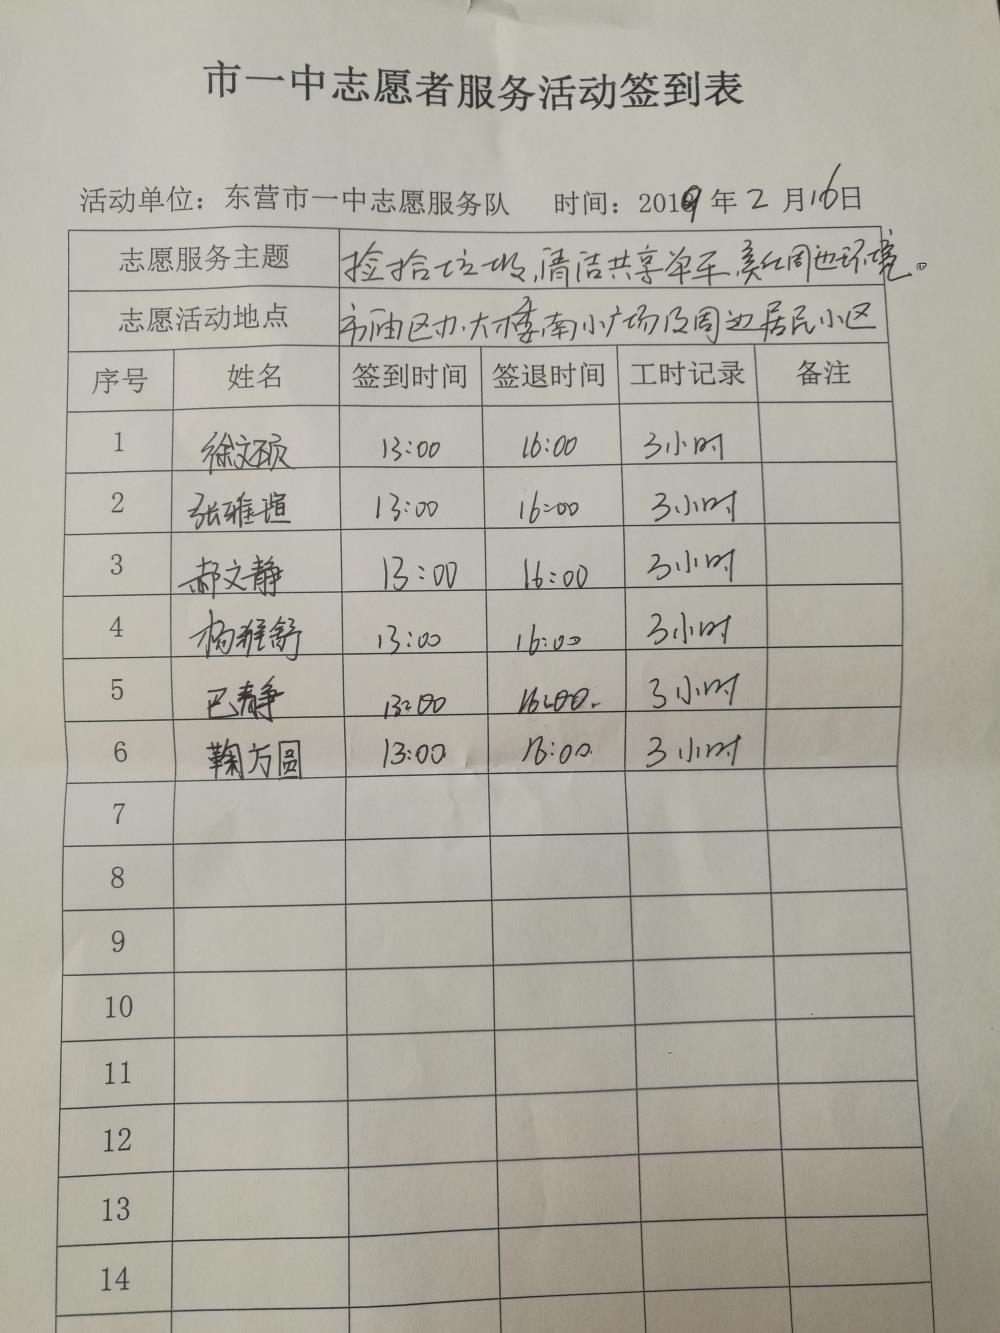 市一中志愿者服务活动签到表
活动单位：东营市一中志愿服务队 时间：2019年2月16日
志愿服务主题 捡拾垃圾，清洁共享单车，美化周边环境。
志愿活动地点 市油区办大楼南小广场及周边居民小区
序号 姓名 签到时间 签退时间 工时记录 备注
1 徐文硕 13:00 16:00 3小时
2 张雅瑄 13:00 16:00 3小时
3 郝文静 13:00 16:00 3小时
4 杨雅舒 13:00 16:00 3小时
5 巴静 13:00 16:00. 3小时
6 鞠方圆 13:00 16:00. 3小时
7
8
9
10
11
12
13
14